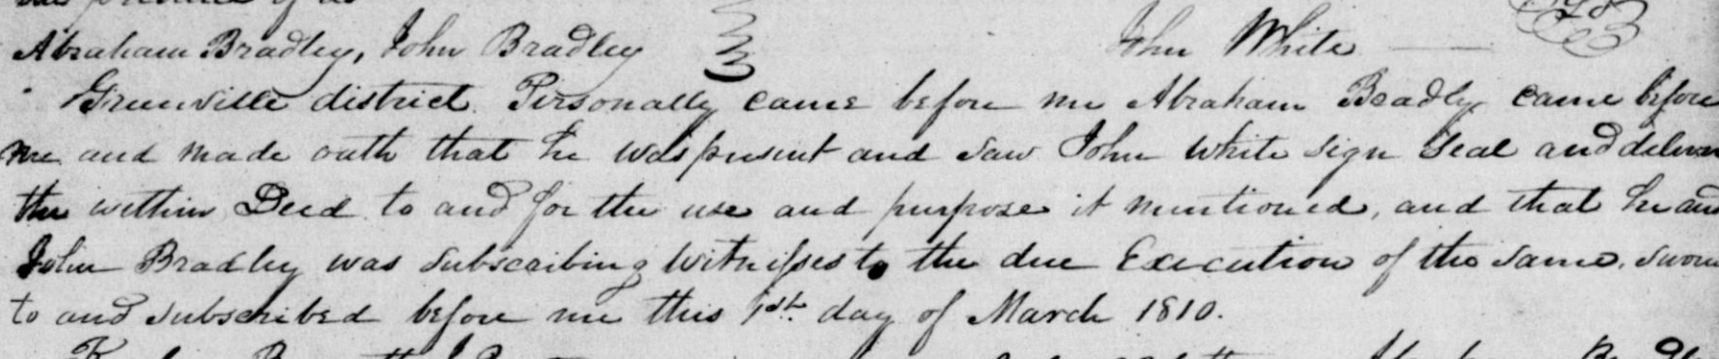 Abraham Bradley, John Bradley John White
Greenville district. Personally came before me Abraham Bradley came before
me and made oath that he was present and saw John White sign Seal and deliver
the within Deed to and for the use and purpose it mentioned, and that he and
John Bradley was subscribing Witnesses to the due Execution of the same. sworn
to and subscribed before me this 1st day of March 1810.